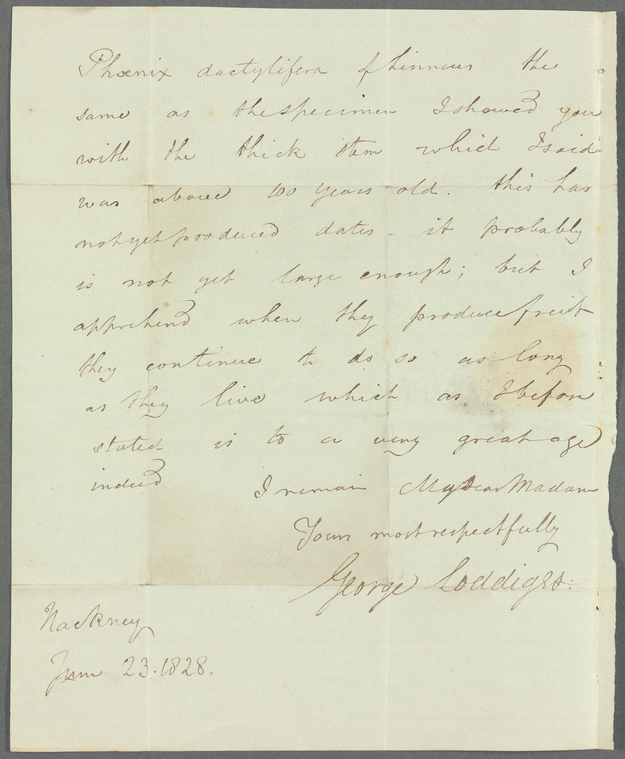 Phœnix dactylifera of Linnæus the
same as the specimen I showed you
with the thick stem which I said
was above 100 years old. this has
not yet produced dates - it probably
is not yet large enough; but I
apprehend when they produce fruit
they continue to do so as long
as they live which as I before
stated is to a very great age
indeed I remain My dear Madam
Yours most respectfully
George Loddiges.
Hackney
June 23. 1828.